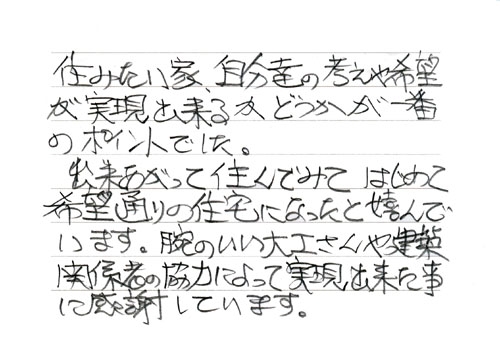 住みたい家、自分達の考えや希望
が実現出来るか どうかが一番
のポイントでした。
出来あがって住んでみて はじめて
希望通りの住宅になったと嬉んで
います。腕のいい大工さんや建築
関係者の協力によって実現出来た事
に感謝しています。